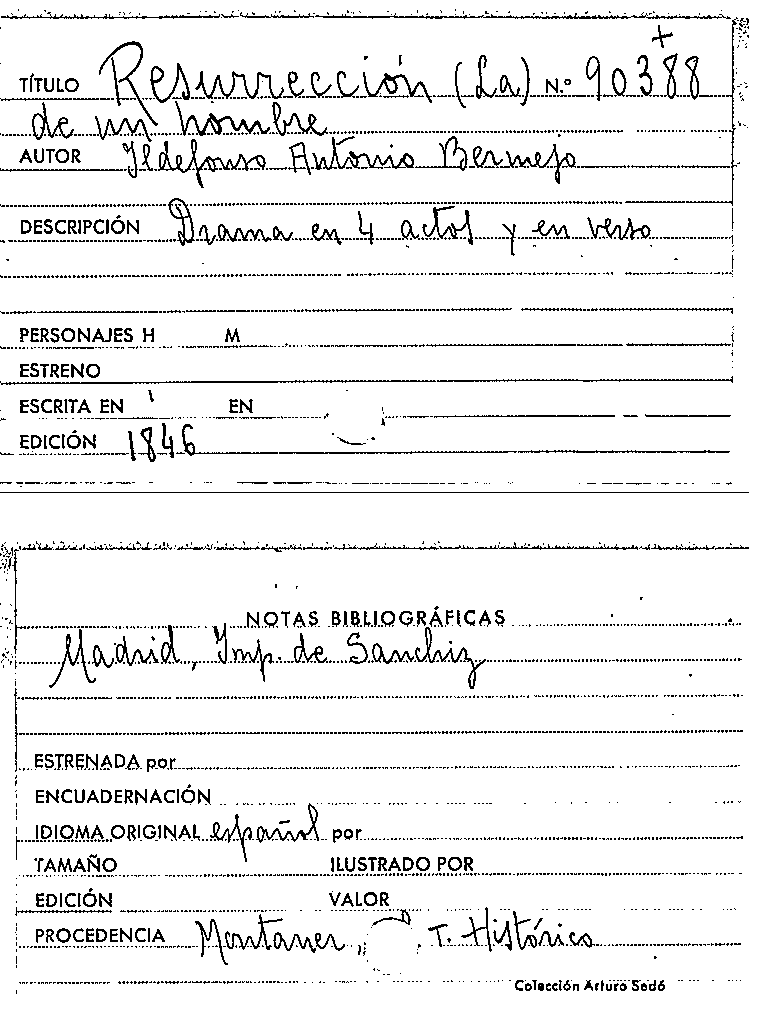 TÍTULO Resurrección (La) N.° 90388
de un hombre
AUTOR Ildefonso Antonio Bermejo
DESCRIPCIÓN Drama en 4 actos y en verso
PERSONAJES H M
ESTRENO
ESCRITA EN EN
EDICIÓN 1846
NOTAS BIBLIOGRÁFICAS
Madrid, Imp. de Sanchiz
ESTRENADA por
ENCUADERNACIÓN
IDIOMA ORIGINAL español por
TAMAÑO ILUSTRADO POR
EDICIÓN VALOR
PROCEDENCIA Montaner, T. Histórico
Colección Arturo Sedó